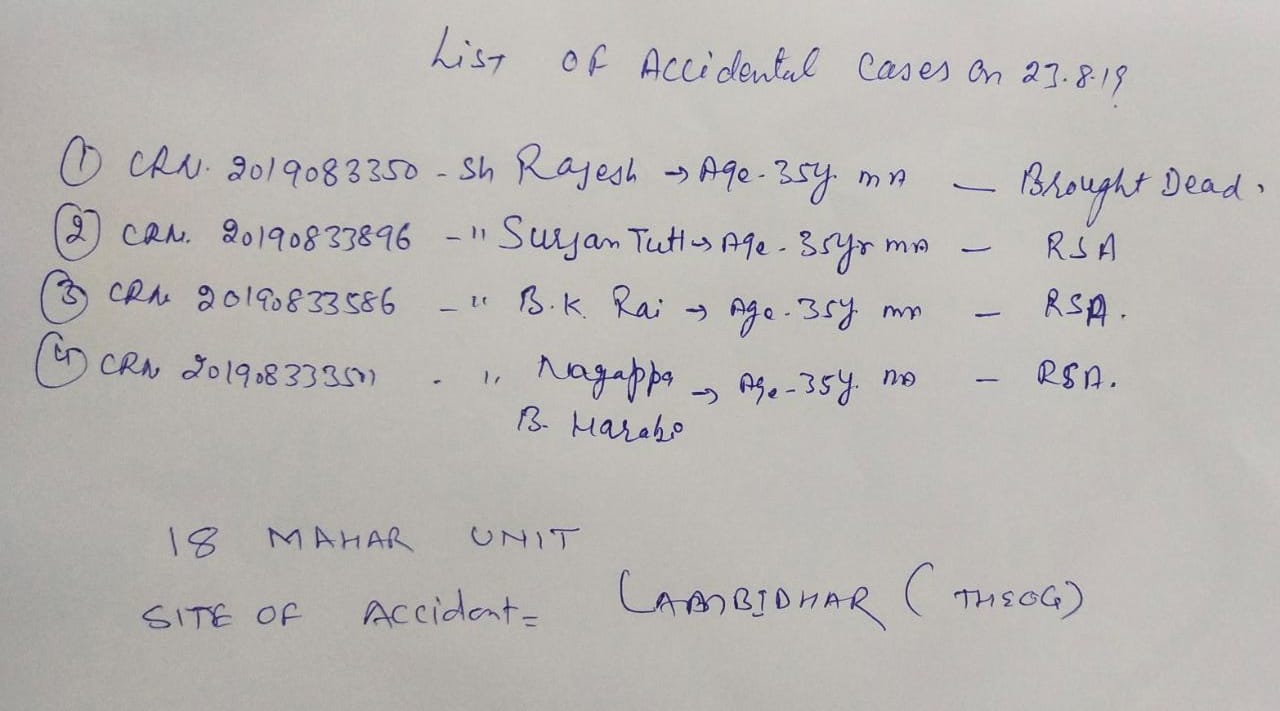 List of Accidental Cases on 23.8.19
① CRN. 2019083350 - Sh Rajesh → Age - 35y. — Brought Dead.
② CRN. 20190833896 - " Surjan → Age - 35yr — RSA
③ CRN 20190833586 - " B.K. Rai → Age - 35y — RSA.
④ CRN - " Nagappa → Age - 35y. — RSA.
B.
18 MAHAR UNIT
SITE OF Accident = (THEOG)